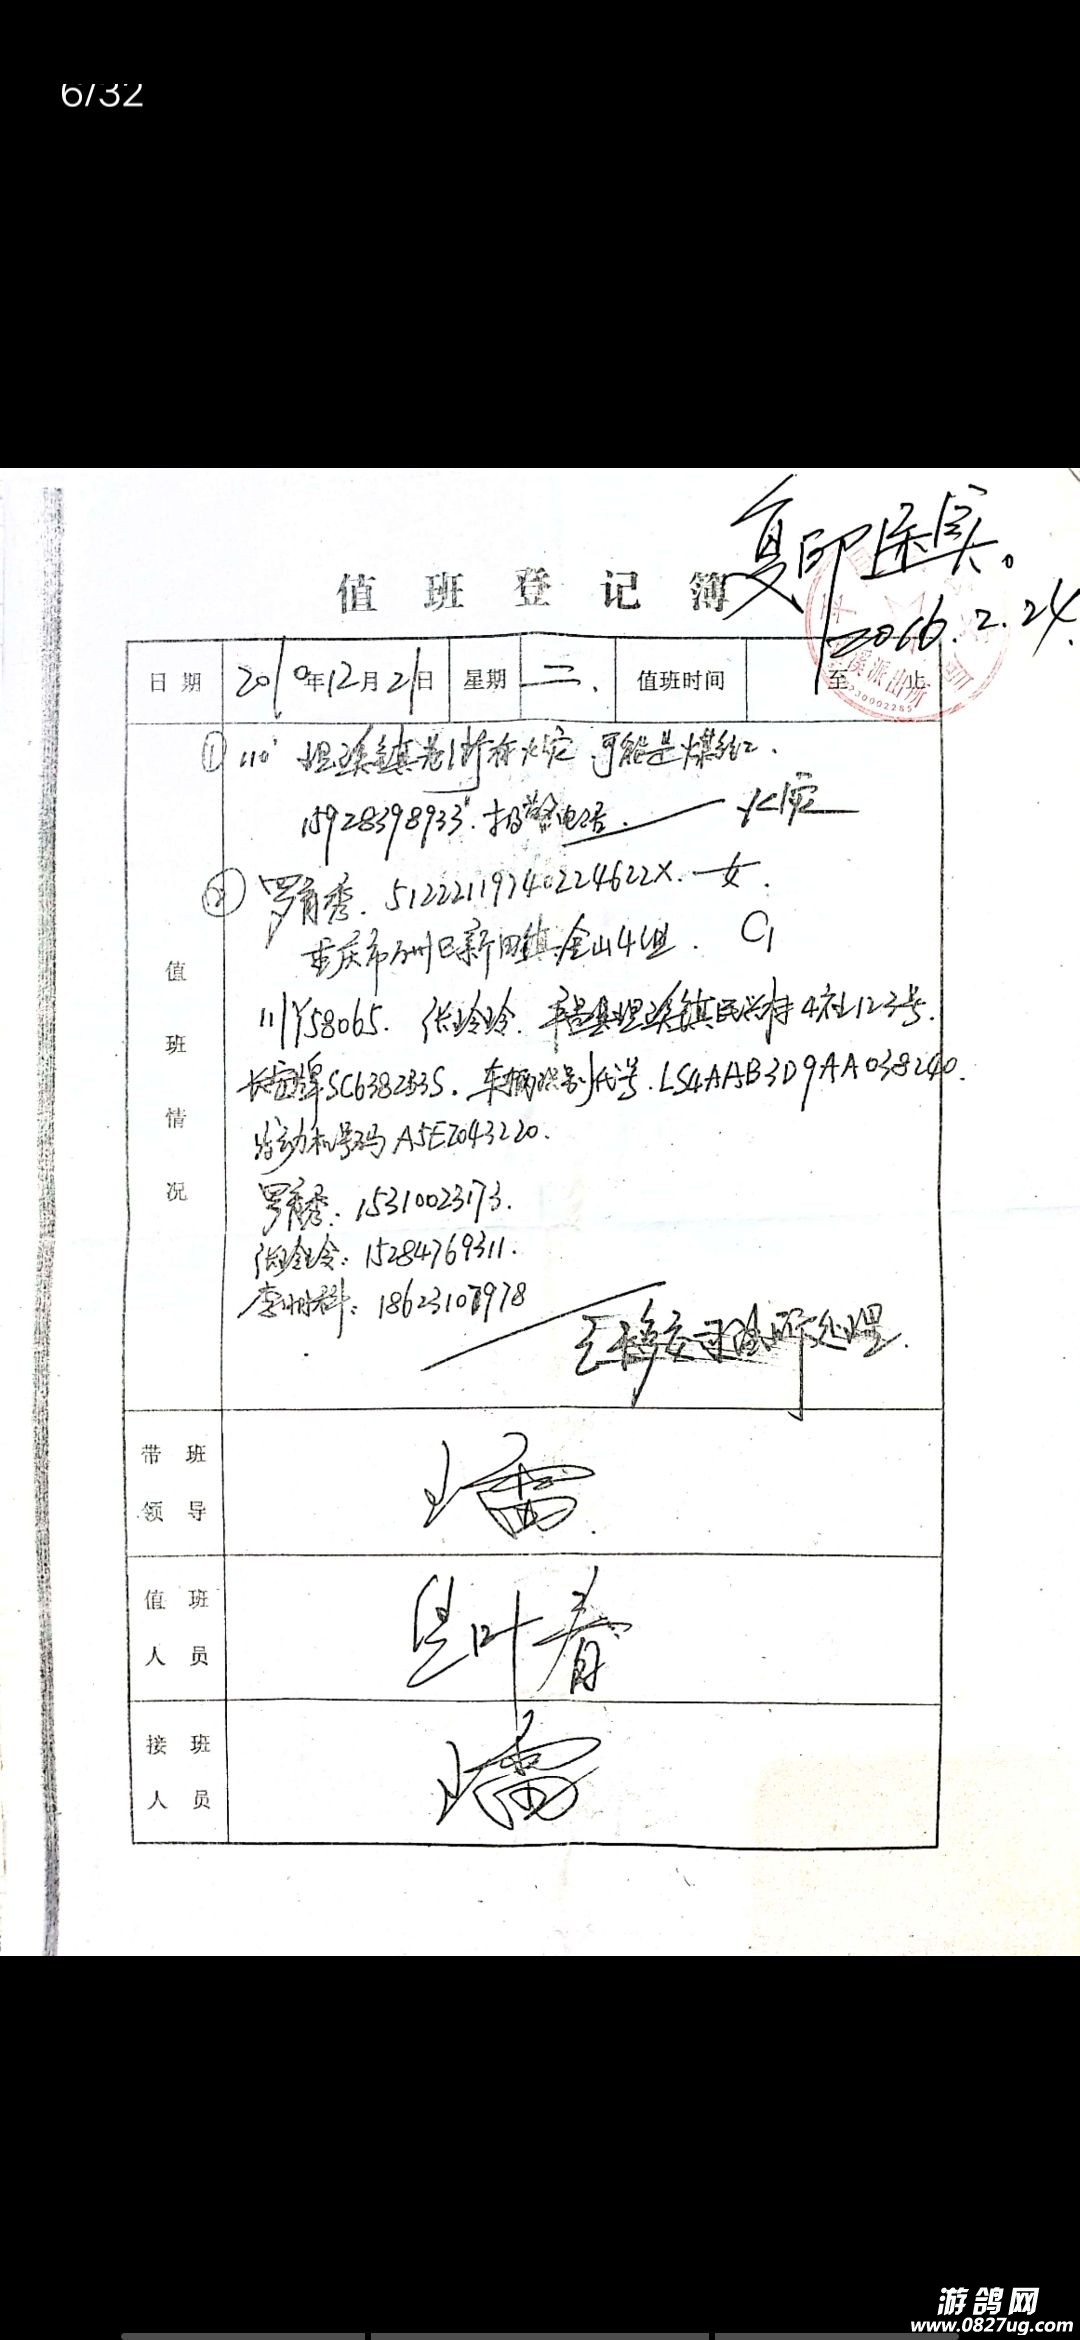 6/32
复印属实。
2016.2.24.
值班登记簿
日期 2010年12月21日 星期二. 值班时间 至 止
溪派出所
230002285
① 110' 坦溪镇巷1 有火灾 可能是煤
15928398933. 报警电话. 火灾
② 罗育秀. 51222119740224622X. 女.
重庆市万州区新田镇金山4组. C1
川Y58065. 张玲玲. 平昌县坦溪镇民兴村4社123号.
长安牌SC6382B3S. 车辆识别代号. LS4AAB3D9AA038240.
发动机号码A5EZ043220.
罗育秀. 15310023173.
张玲玲: 15284769311.
李 科: 18623107978
已移交司法所处理.
值班情况
带班领导
值班人员
叶春
接班人员
游鸽网
www.0827ug.com